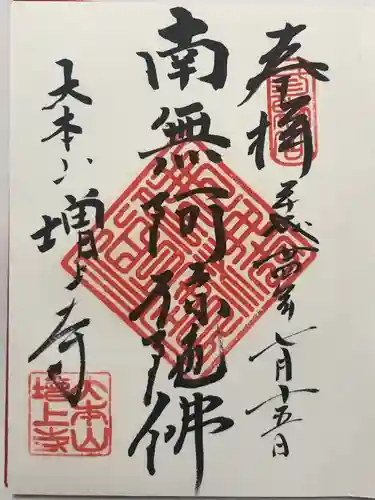 奉拝
平成二十四年七月十五日
南無阿弥陀佛
大本山増上寺
大本山
増上寺